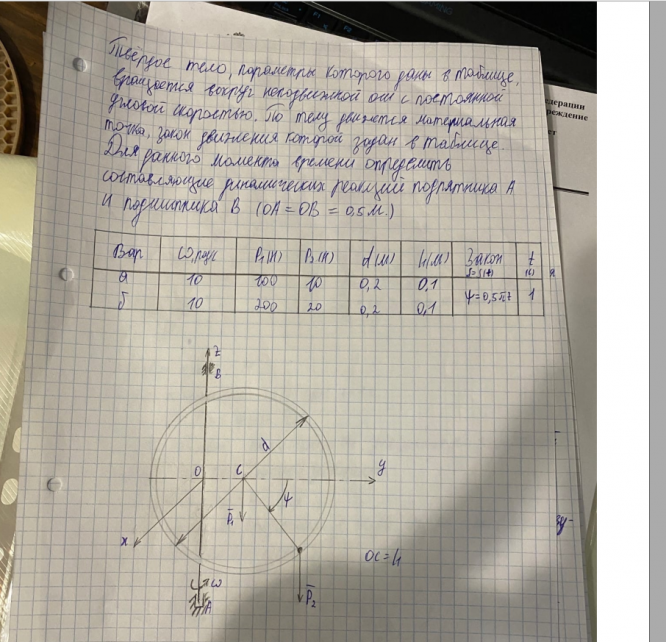 Твёрдое тело, параметры которого даны в таблице,
вращается вокруг неподвижной оси с постоянной
угловой скоростью. По телу движется материальная
точка, закон движения которой задан в таблице.
Для данного момента времени определить
составляющие динамических реакций подпятника А
и подшипника В (ОА = ОВ = 0,5 м.)
Вар ω, рад/с P₁(Н) P₂(Н) d(м) h(м) Закон s=s(t) t (с)
а 10 100 10 0,2 0,1 ψ=0,5πt 1
б 10 200 20 0,2 0,1
z
B
d
O C y
ψ
P̄₁
x
OC = h
ω
A P̄₂
дерации
реждение
ет